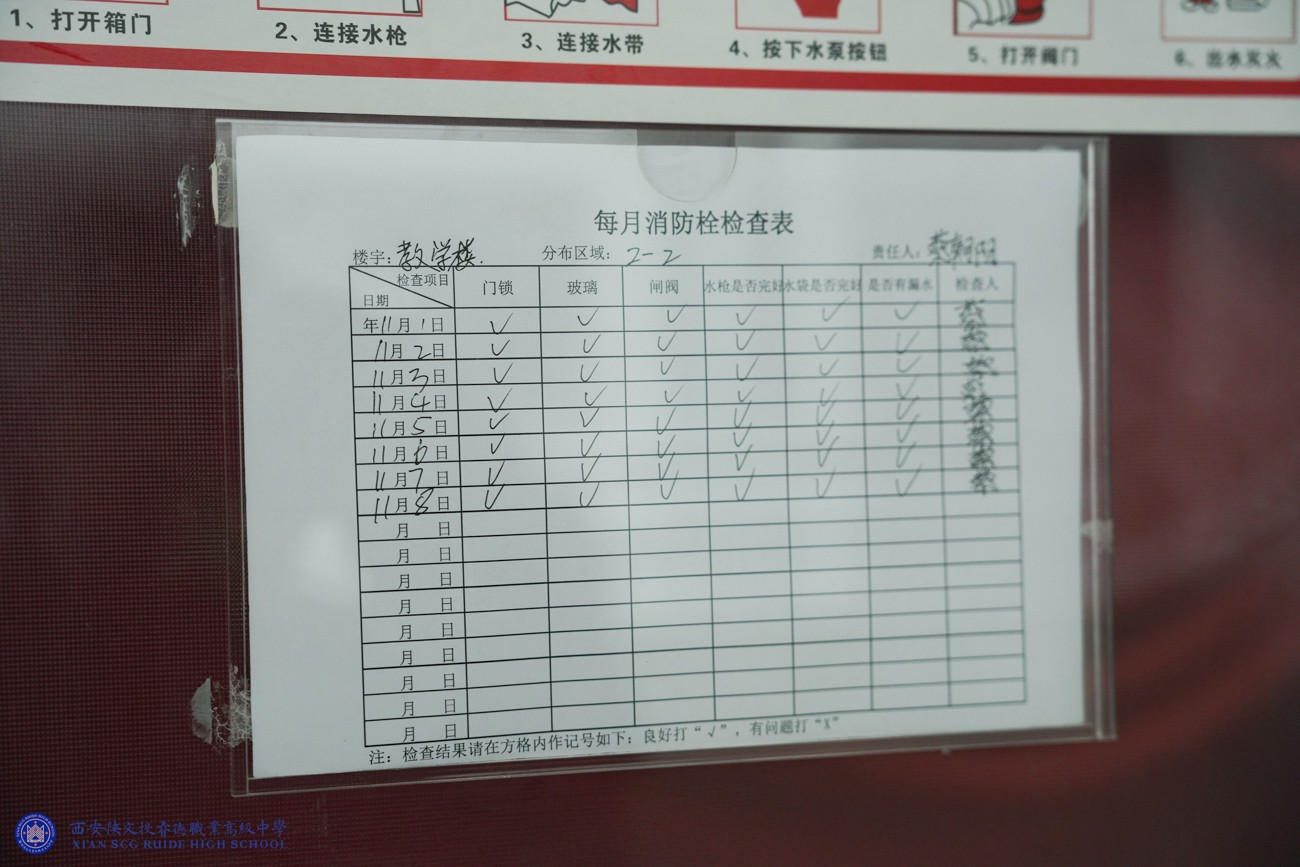 1、打开箱门
2、连接水枪
3、连接水带
4、按下水泵按钮
5、打开阀门
6、出水灭火
每月消防栓检查表
楼宇：教学楼. 分布区域：2-2 责任人：蔡朝阳
检查项目 日期 门锁 玻璃 闸阀 水枪是否完好 水袋是否完好 是否有漏水 检查人
年11月1日 √ √ √ √ √ √
11月2日 √ √ √ √ √ √
11月3日 √ √ √ √ √ √
11月4日 √ √ √ √ √ √
11月5日 √ √ √ √ √ √
11月6日 √ √ √ √ √ √
11月7日 √ √ √ √ √ √
11月8日 √ √ √ √ √ √
月 日
月 日
月 日
月 日
月 日
月 日
月 日
月 日
月 日
注：检查结果请在方格内作记号如下：良好打“√”，有问题打“X”
西安陕文投睿德職業高級中學
XI'AN SCG RUIDE HIGH SCHOOL